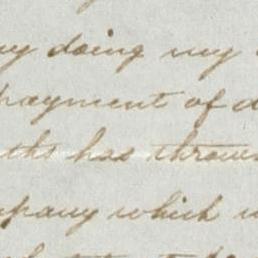 doing my
payment of
ths has thrown
pany which